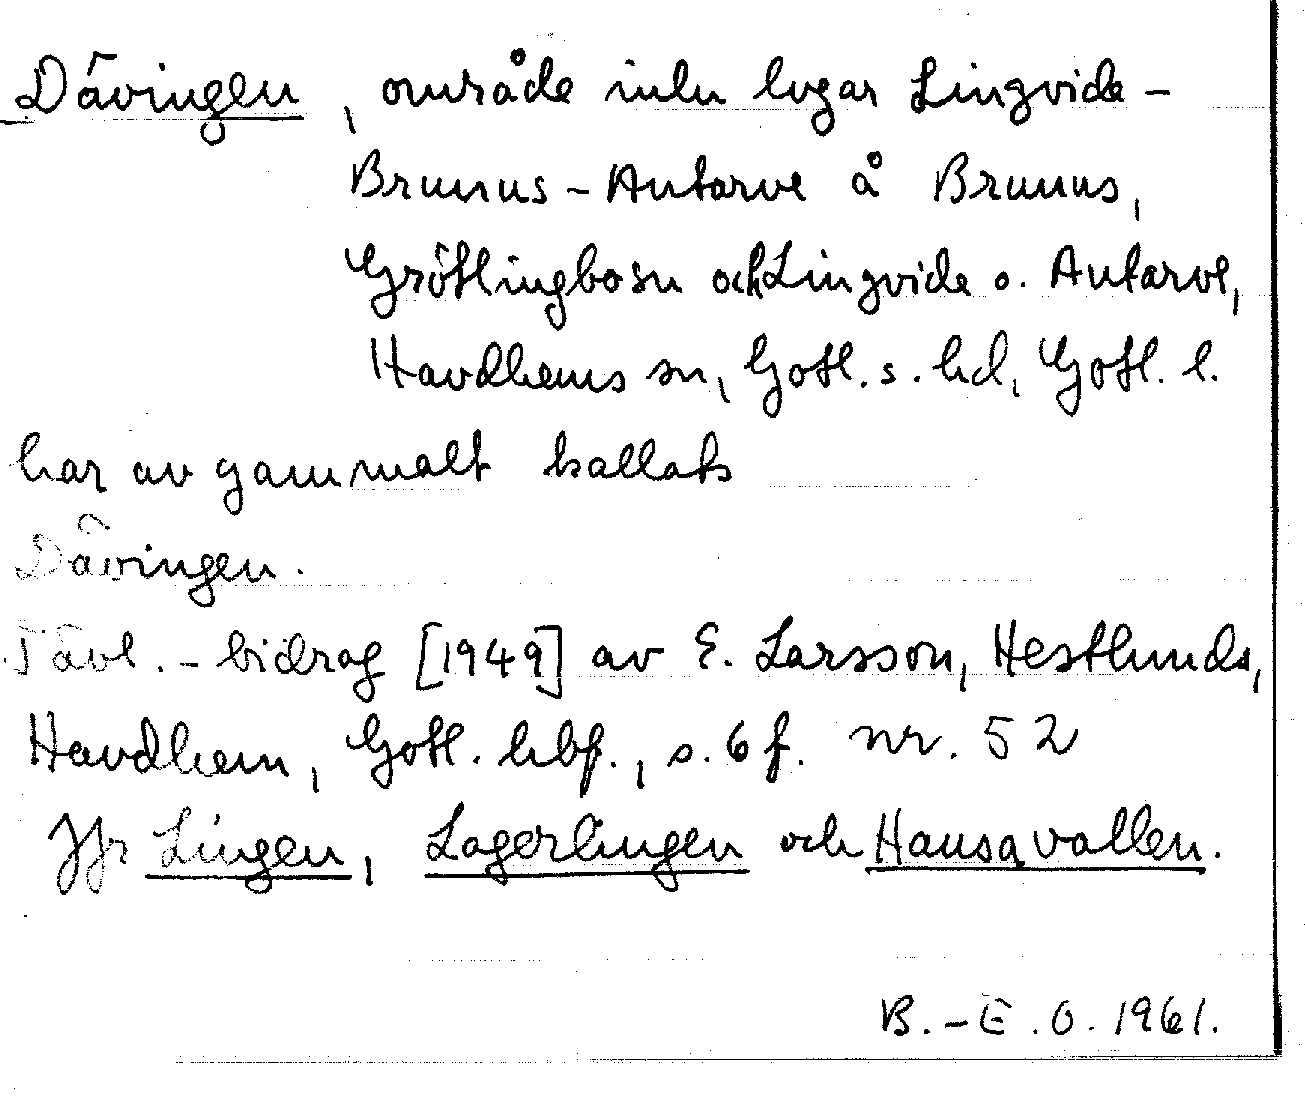 Dävingen, område inlu lugar Lingvide -
Brunns - Autarve å Brunns,
Grötlingbo sn och Lingvide o. Autarve,
Havdhems sn, Gotl. s. hd, Gotl. l.
har av gammalt kallats
Dävingen.
Tävl. - bidrag [1949] av E. Larsson, Hestlunds,
Havdhem, Gotl. hbf., s. 6 f. nr. 52
Jfr Lingen, Lagerlingen och Hausavallen.
B. - E. O. 1961.